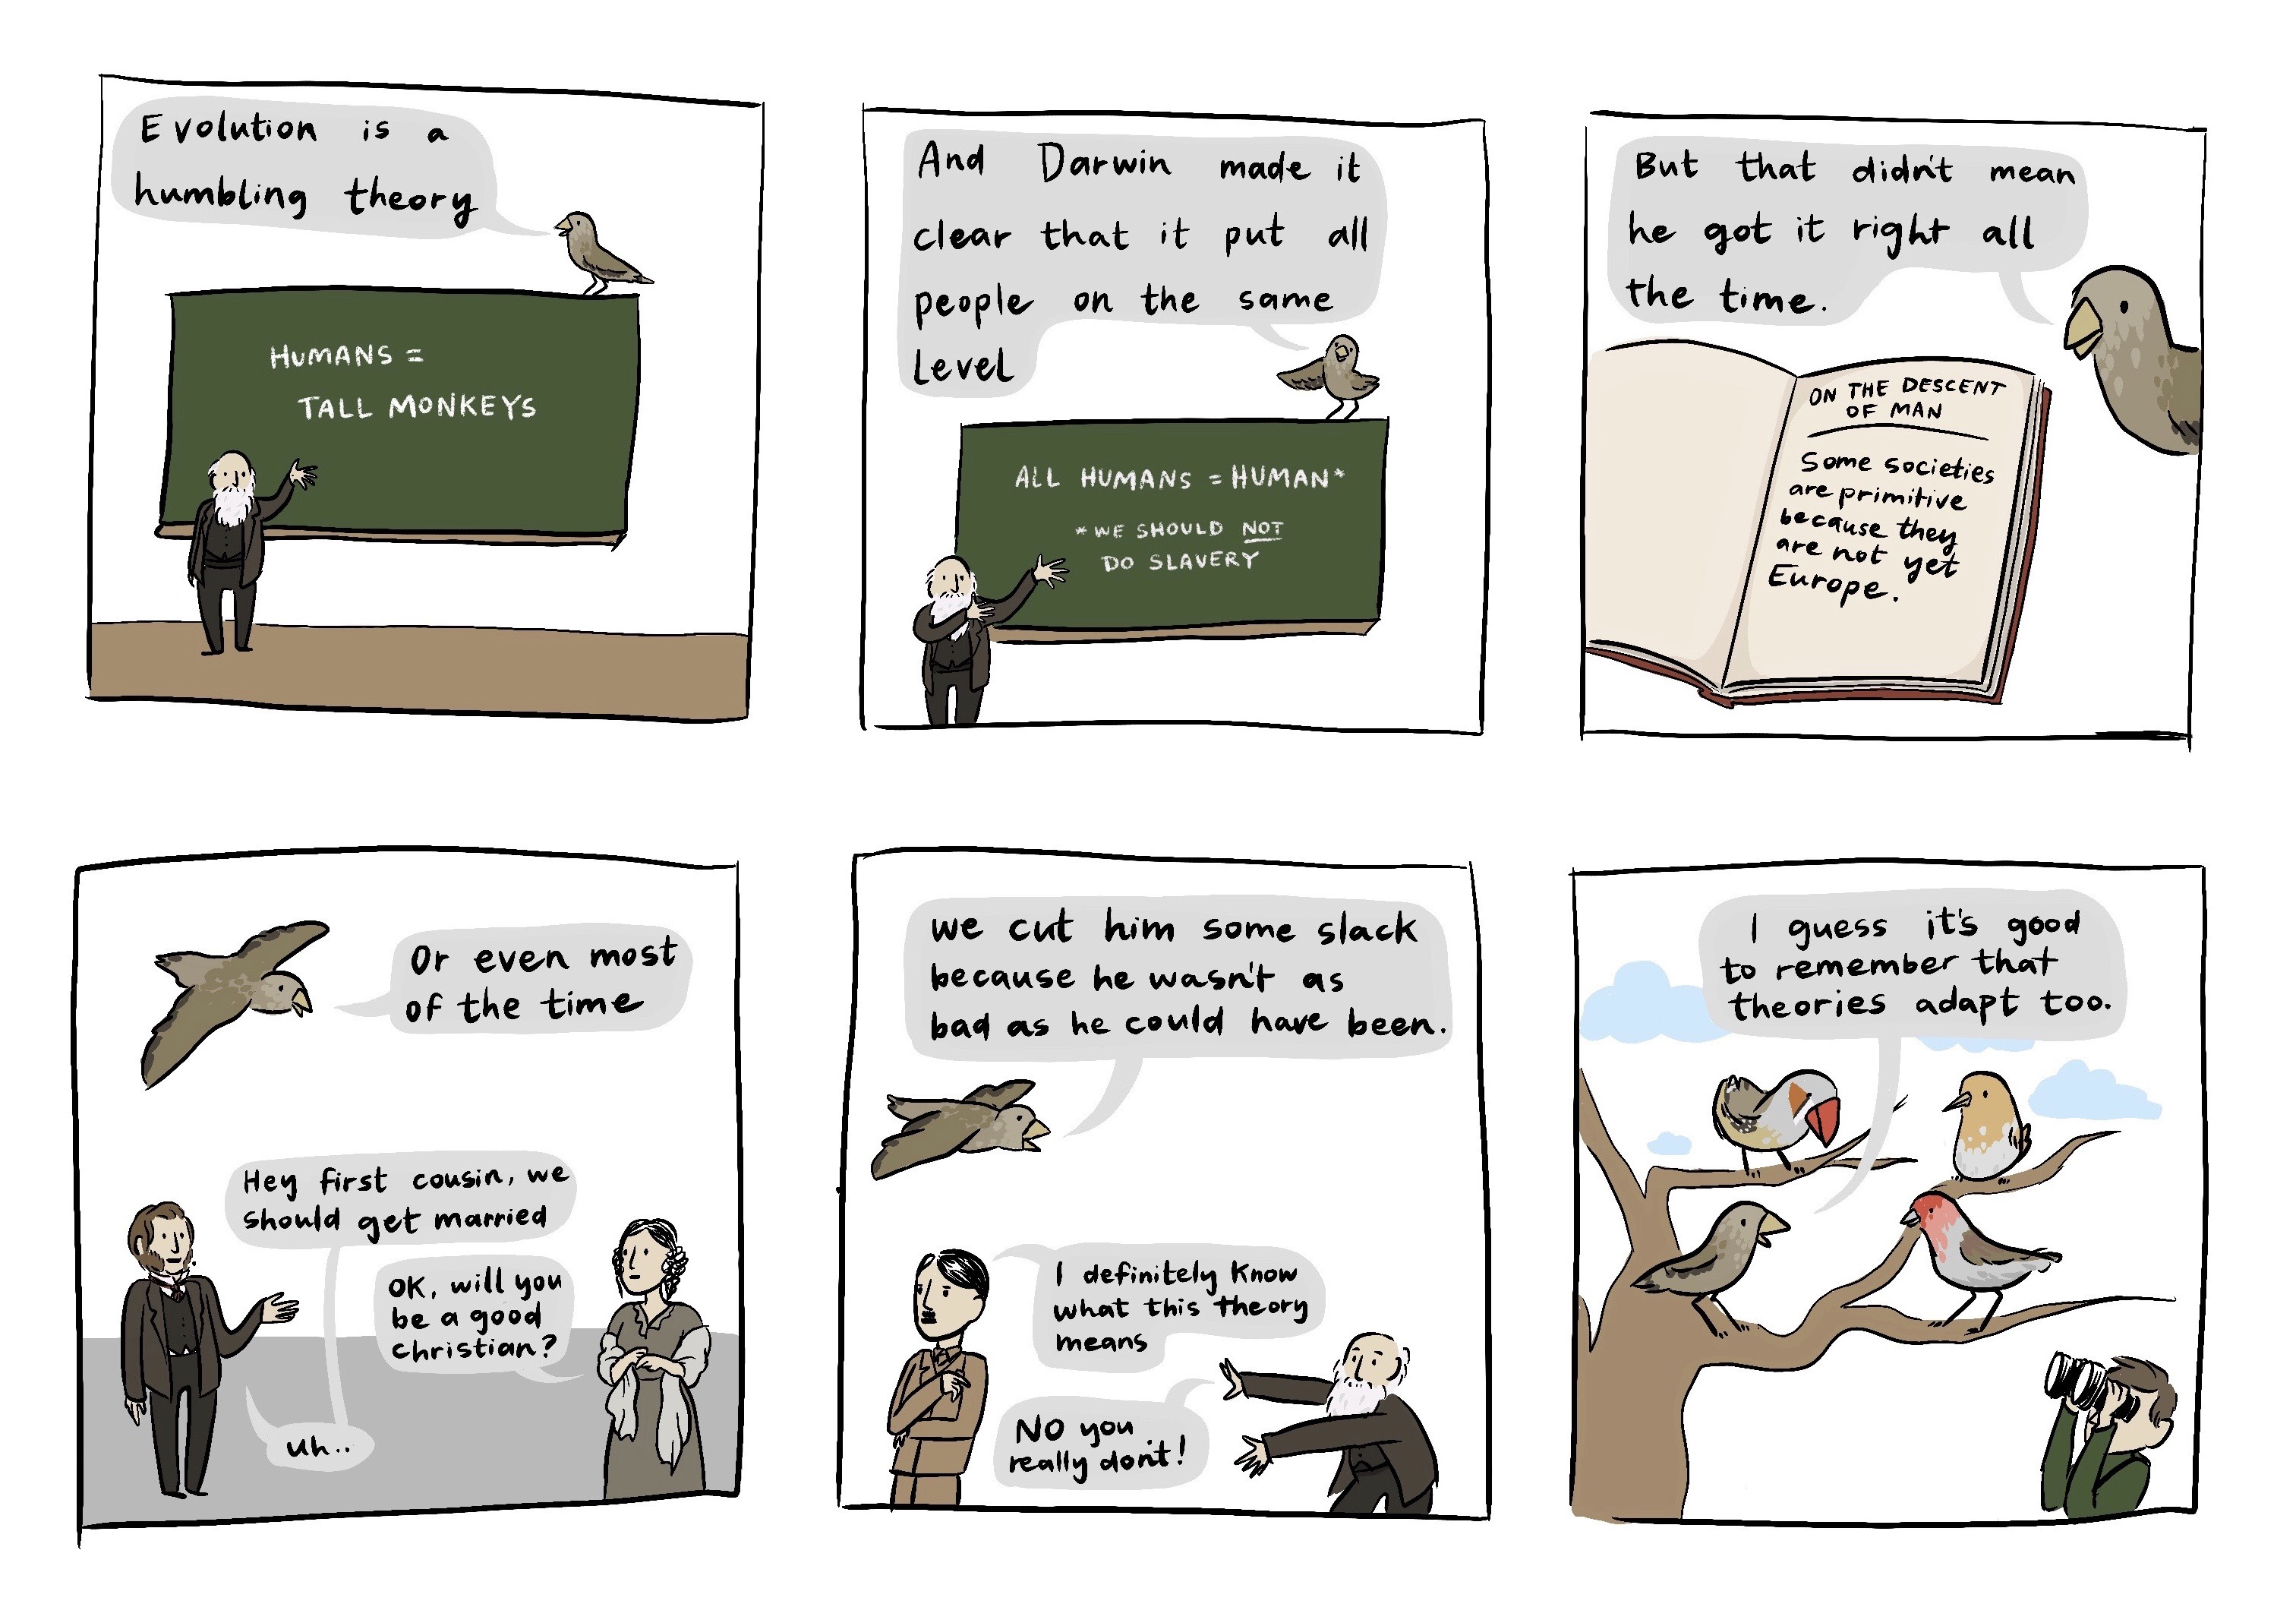 Evolution is a
humbling theory
HUMANS =
TALL MONKEYS
And Darwin made it
clear that it put all
people on the same
level
ALL HUMANS = HUMAN*
*WE SHOULD NOT
DO SLAVERY
But that didn't mean
he got it right all
the time.
ON THE DESCENT
OF MAN
Some societies
are primitive
because they
are not yet
Europe.
Or even most
of the time
Hey first cousin, we
should get married
OK, will you
be a good
christian?
uh..
we cut him some slack
because he wasn't as
bad as he could have been.
I definitely know
what this theory
means
NO you
really don't!
I guess it's good
to remember that
theories adapt too.